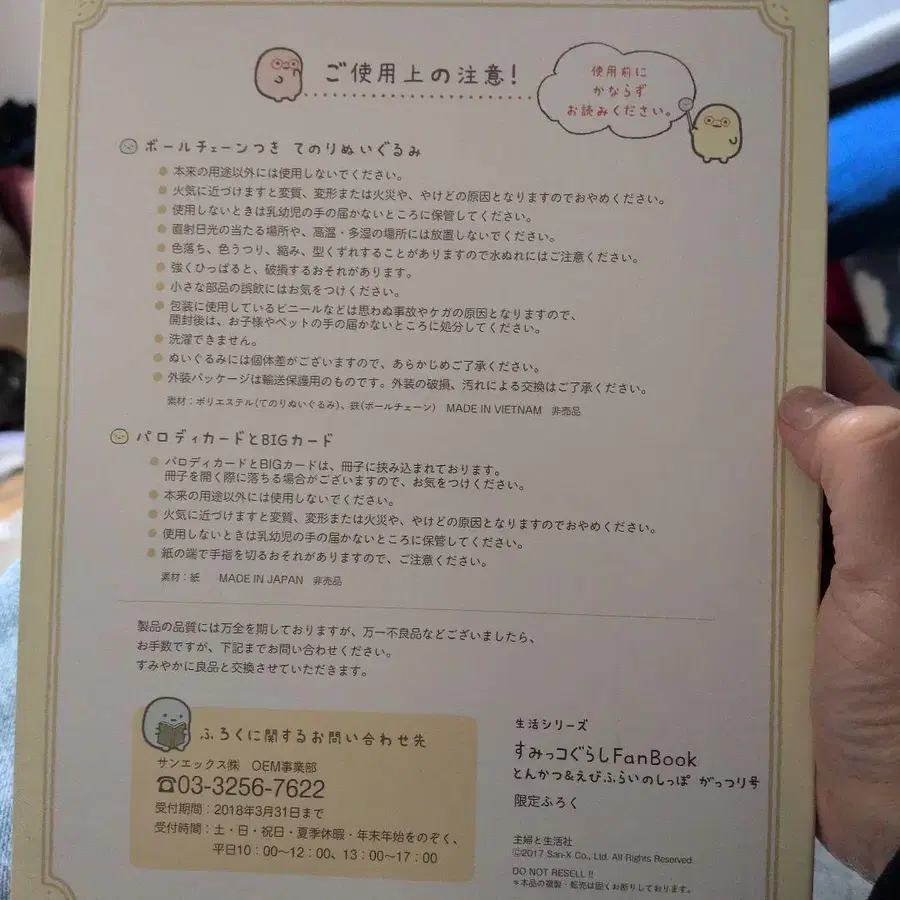 ご使用上の注意!
使用前に
かならず
お読みください。
ボールチェーンつき てのりぬいぐるみ
本来の用途以外には使用しないでください。
火気に近づけますと変質、変形または火災や、やけどの原因となりますのでおやめください。
使用しないときは乳幼児の手の届かないところに保管してください。
直射日光の当たる場所や、高温・多湿の場所には放置しないでください。
色落ち、色うつり、縮み、型くずれすることがありますので水ぬれにはご注意ください。
強くひっぱると、破損するおそれがあります。
小さな部品の誤飲にはお気をつけください。
包装に使用しているビニールなどは思わぬ事故やケガの原因となりますので、
開封後は、お子様やペットの手の届かないところに処分してください。
洗濯できません。
ぬいぐるみには個体差がございますので、あらかじめご了承ください。
外装パッケージは輸送保護用のものです。外装の破損、汚れによる交換はご了承ください。
素材:ポリエステル(てのりぬいぐるみ)、鉄(ボールチェーン) MADE IN VIETNAM 非売品
パロディカードとBIGカード
パロディカードとBIGカードは、冊子に挟み込まれております。
冊子を開く際に落ちる場合がございますので、お気をつけください。
本来の用途以外には使用しないでください。
火気に近づけますと変質、変形または火災や、やけどの原因となりますのでおやめください。
使用しないときは乳幼児の手の届かないところに保管してください。
紙の端で手指を切るおそれがありますので、ご注意ください。
素材:紙 MADE IN JAPAN 非売品
製品の品質には万全を期しておりますが、万一不良品などございましたら、
お手数ですが、下記までお問い合わせください。
すみやかに良品と交換させていただきます。
ふろくに関するお問い合わせ先
サンエックス㈱ OEM事業部
☎03-3256-7622
受付期間:2018年3月31日まで
受付時間:土・日・祝日・夏季休暇・年末年始をのぞく、
平日10:00〜12:00、13:00〜17:00
生活シリーズ
すみっコぐらしFanBook
とんかつ&えびふらいのしっぽ がっつり号
限定ふろく
主婦と生活社
©2017 San-X Co., Ltd. All Rights Reserved.
DO NOT RESELL !!
*本品の複製・転売は固くお断りしております。